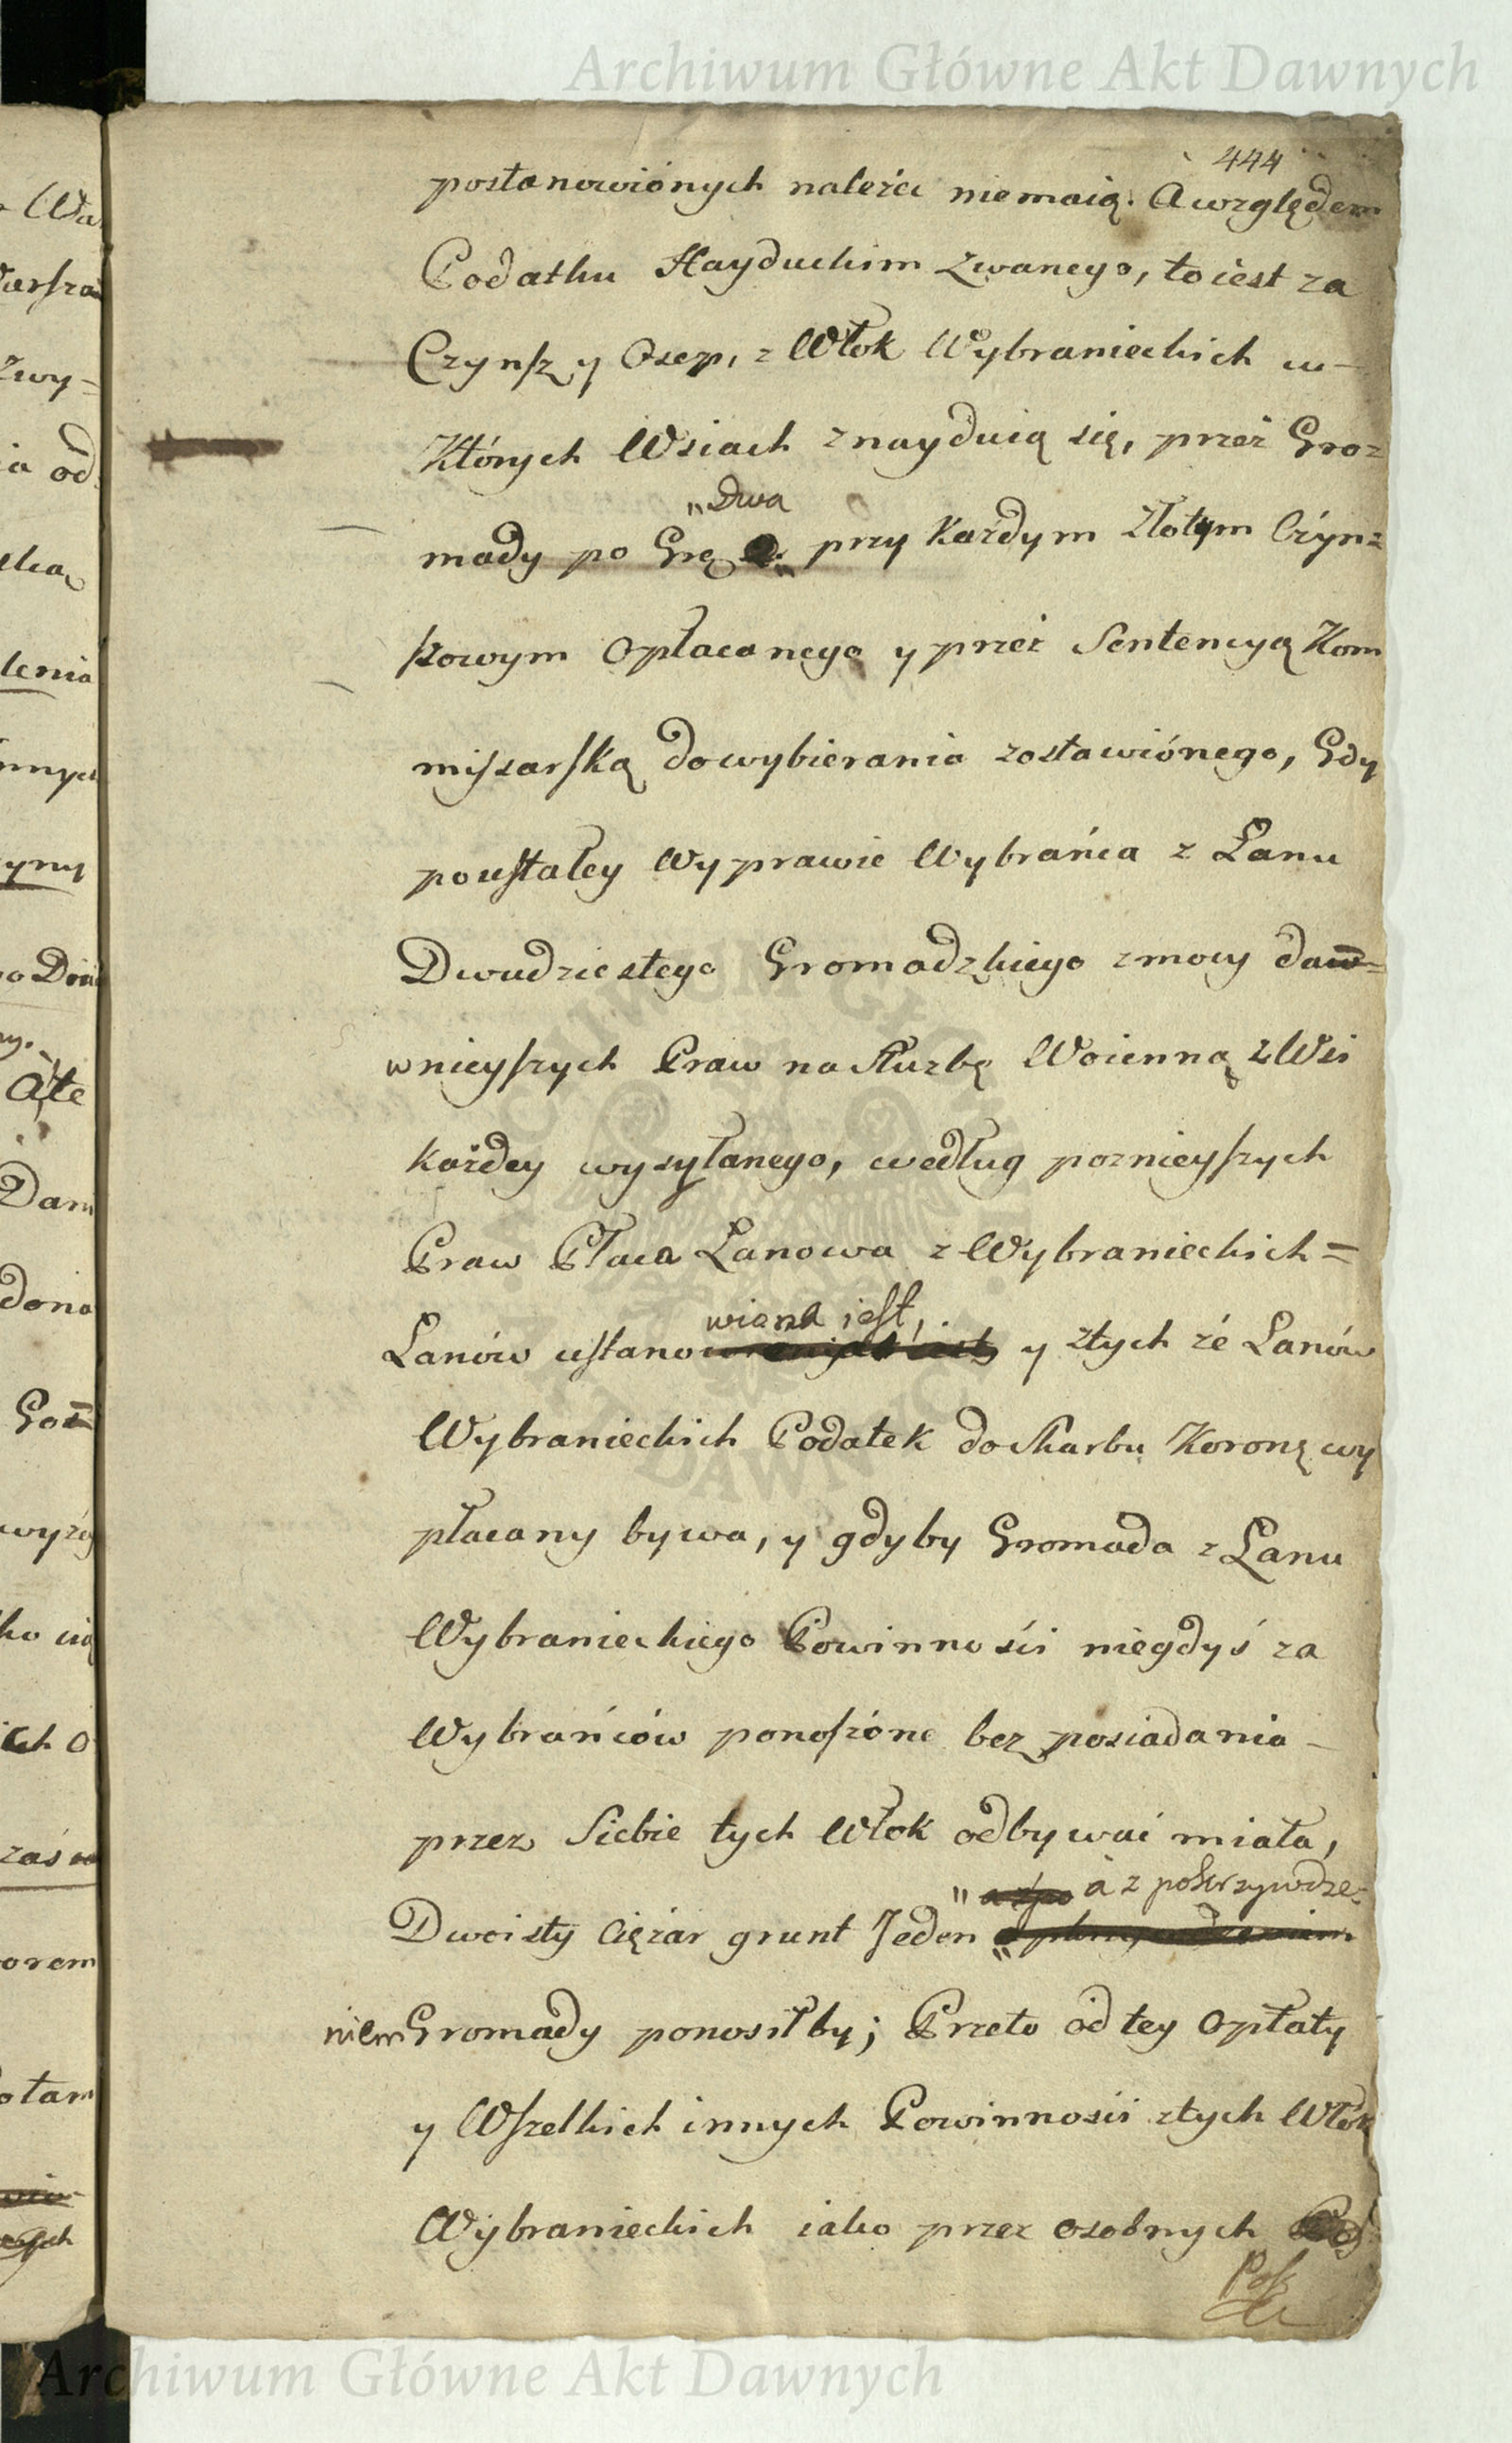 Archiwum Główne Akt Dawnych
444
postanowiónych należeć niemaią. A względem
Podatku Hayduckim zwanego, to iest za
Czynſz y Osep, z Włok Wybranieckich w-
Których Wsiach znayduią się, przez Gro=
"Dwa
mady po Grę przy Każdym złotym Czyn=
ſzowym Opłacanego y przez Sentencyą Kom
miſsarſką dowybierania zostawiónego, Gdy
pouſtałey Wyprawie Wybrańca z Łanu
Dwudziestego Gromadzkiego zmocy daw=
wnieyſzych Praw na Służbę Woienną z Wsi
każdey wysyłanego, według poznieyſzych
Praw Płaca Łanowa z Wybranieckich=
wiona ieſt,
Łanów uſtano y ztych że Łanów
Wybranieckich Podatek do Skarbu Koronę wy
płacany bywa, y gdyby Gromada z Łanu
Wybranieckiego Powinności niegdyś za
Wybrańców ponoſzóne bez posiadania-
przez Siebie tych Włok odbywać miała,
" a z pokrzywdze=
Dwoisty Ciężar grunt Jeden
niem Gromady ponosiłby; Przeto od tey Opłaty
y Wſzelkich innych Powinności ztych Włok
Wybranieckich iako przez osobnych
Archiwum Główne Akt Dawnych